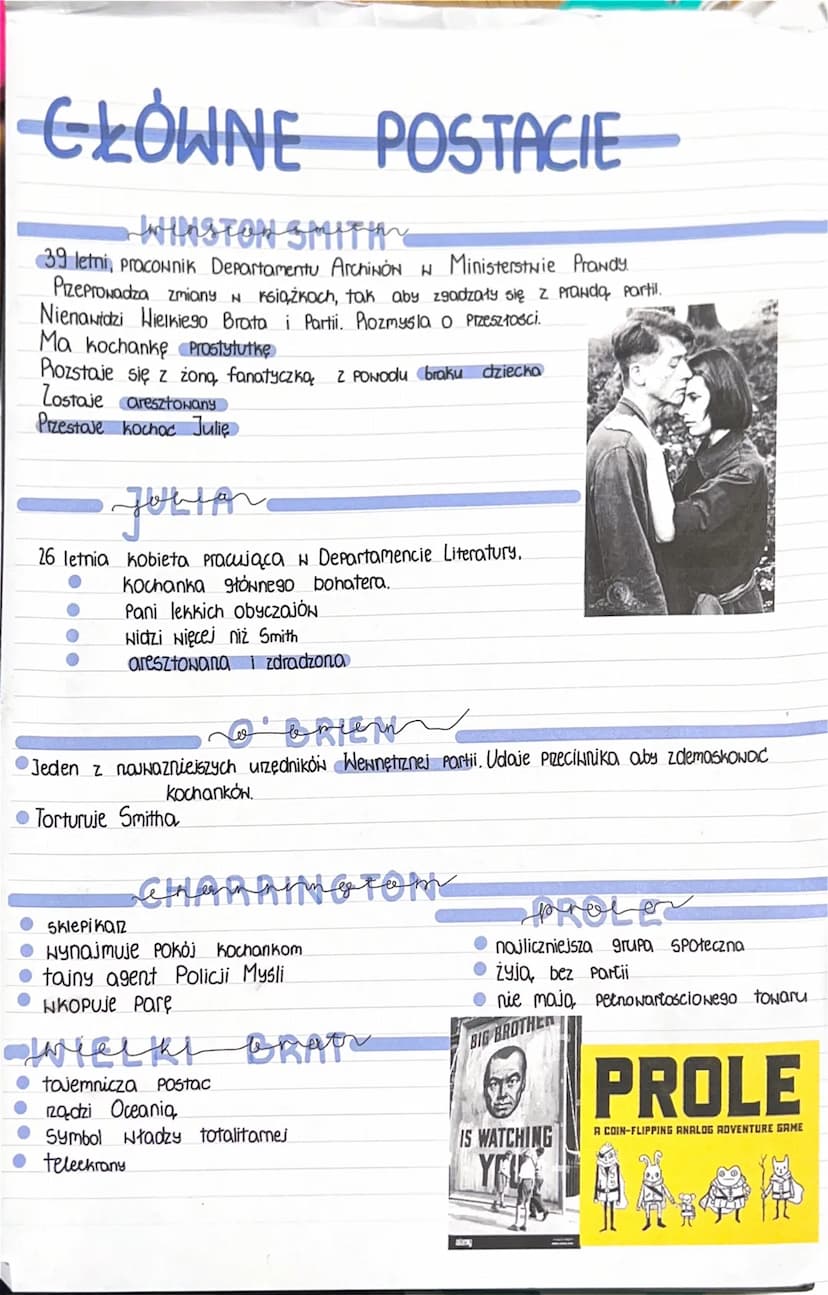 GŁÓWNE POSTACIE
WINSTON SMITH
39 letni, pracownik Departamentu Archiwów w Ministerstwie Prawdy.
Przeprowadza zmiany w książkach, tak aby zgadzały się z prawdą partii.
Nienawidzi Wielkiego Brata i Partii. Rozmyśla o przeszłości.
Ma kochankę prostytutkę
Rozstaje się z żoną, fanatyczką z powodu braku dziecka
Zostaje aresztowany
Przestaje kochać Julię
JULIA
26 letnia kobieta pracująca w Departamencie Literatury.
kochanka głównego bohatera.
Pani lekkich obyczajów
widzi więcej niż Smith
aresztowana i zdradzona
O'BRIEN
Jeden z najważniejszych urzędników Wewnętrznej Partii. Udaje przeciwnika aby zdemaskować
kochanków.
Torturuje Smitha
CHARRINGTON
sklepikarz
wynajmuje pokój kochankom
tajny agent Policji Myśli
wkopuje parę
PROLE
najliczniejsza grupa społeczna
żyją bez partii
nie mają pełnowartościowego towaru
WIELKI BRAT
tajemnicza postać
rządzi Oceanią
symbol władzy totalitarnej
teleekrany
BIG BROTHER
IS WATCHING
YOU
alamy
PROLE
A COIN-FLIPPING ANALOG ADVENTURE GAME